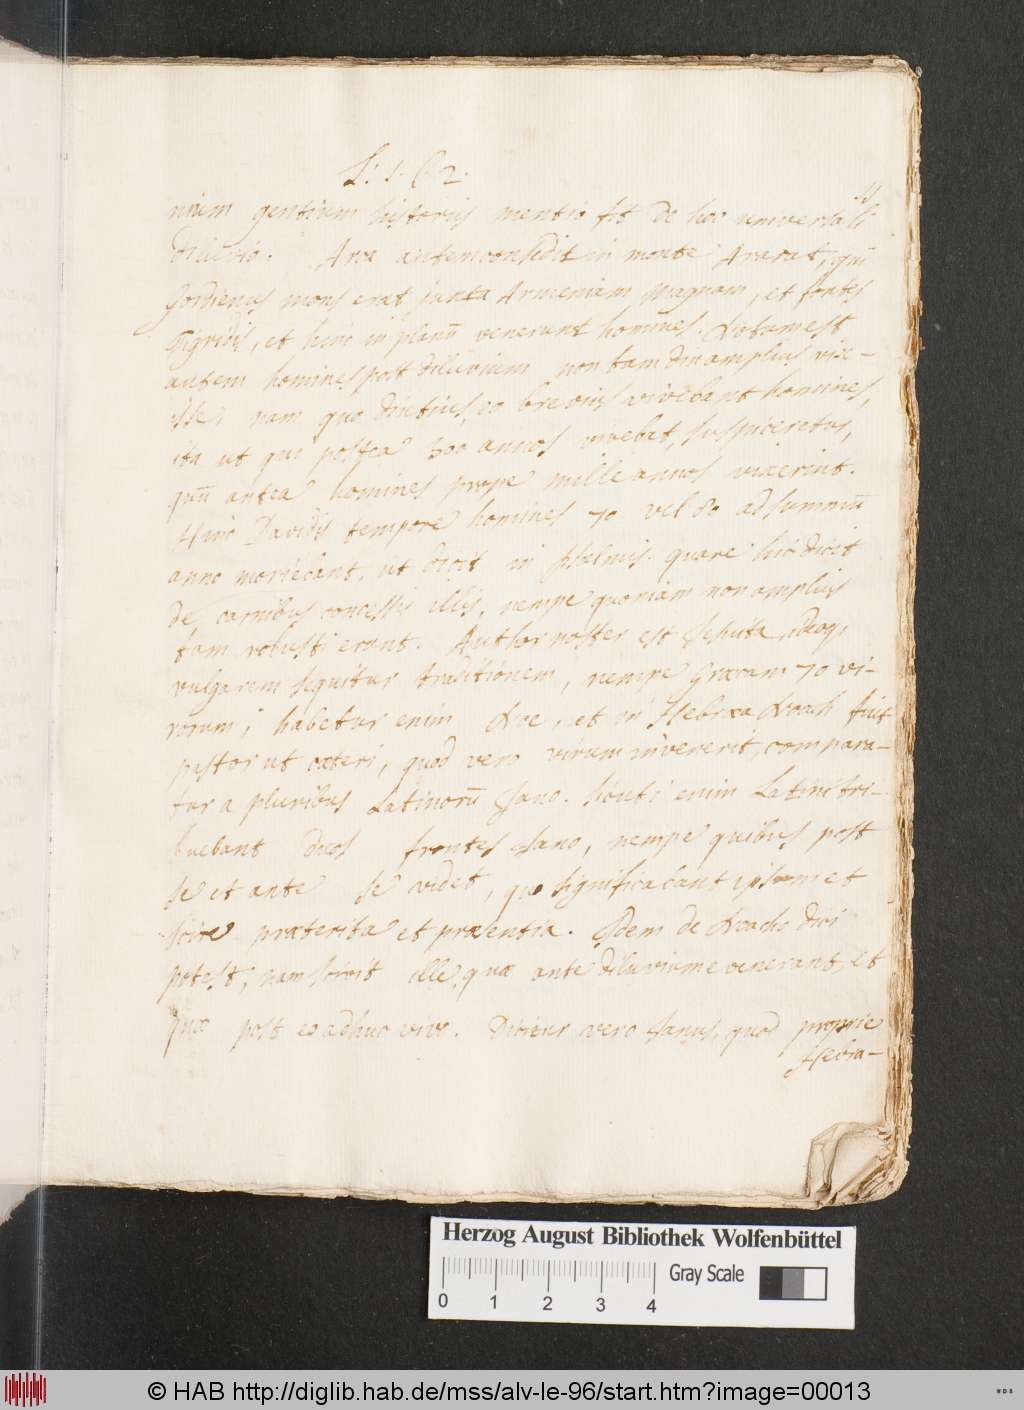 L. 1. C. 2.
11
nium gentium historiis mentio fit de hoc universali
diluvio. Arca autem consedit in monte Ararat, qui
Gordienus mons erat juxta Armeniam magnam, et fontes
Tigridis, et hinc in planū venerunt homines. Notum est
autem homines post diluvium non tam diu amplius vix-
isse, nam quo diutius, eo brevius vivebant homines,
ita ut qui postea 300 annos vivebat, suspiceretur,
quū antea homines prope mille annos vixerint.
Hinc Davidis tempore homines 70 vel 80 ad summū
anno moriebant, ut dicit in psalmis. quare hic dicit
de carnibus concessis illis, nempe quoniam non amplius
tam robusti erant. Author noster est Jesuita, ideoq,
vulgarem sequitur traditionem, nempe Græcam 70 vi-
rorum; habetur enim Noe, et in Hebræa Noach fuit
pastor ut cæteri, quod vero vinum invenerit, compara-
tur a pluribus Latinorū Jano. Sicuti enim Latini tri-
buebant duos frontes Jano, nempe quibus post
se et ante se videt, quo significabant ipsum et
scire præterita et præsentia. Idem de Noacho dici
potest; nam scivit ille, quæ ante diluvium evenerant, et
quæ post eo adhuc vivo. Dicitur vero Janus, quod proprie
Hebra-
Herzog August Bibliothek Wolfenbüttel
0 1 2 3 4
Gray Scale
© HAB http://diglib.hab.de/mss/alv-le-96/start.htm?image=00013